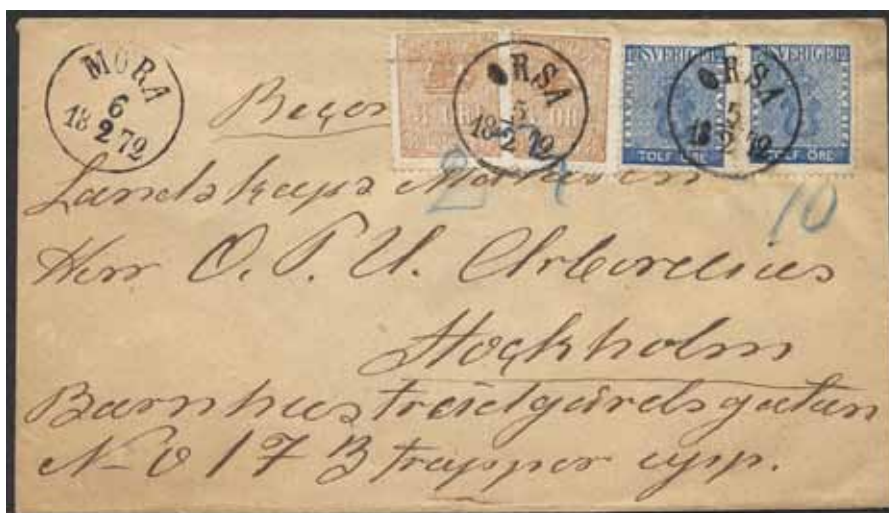 MORA
6
18 2 72
ORSA
5
18 2 72
ORSA
5
18 2 72
SVERIGE
TOLF ÖRE
SVERIGE
TOLF ÖRE
24
10
Landskaps Målaren
Herr O. P. U. Arborelius
Stockholm
Barnhusträdgårdsgatan
No 17 3 trappor upp.